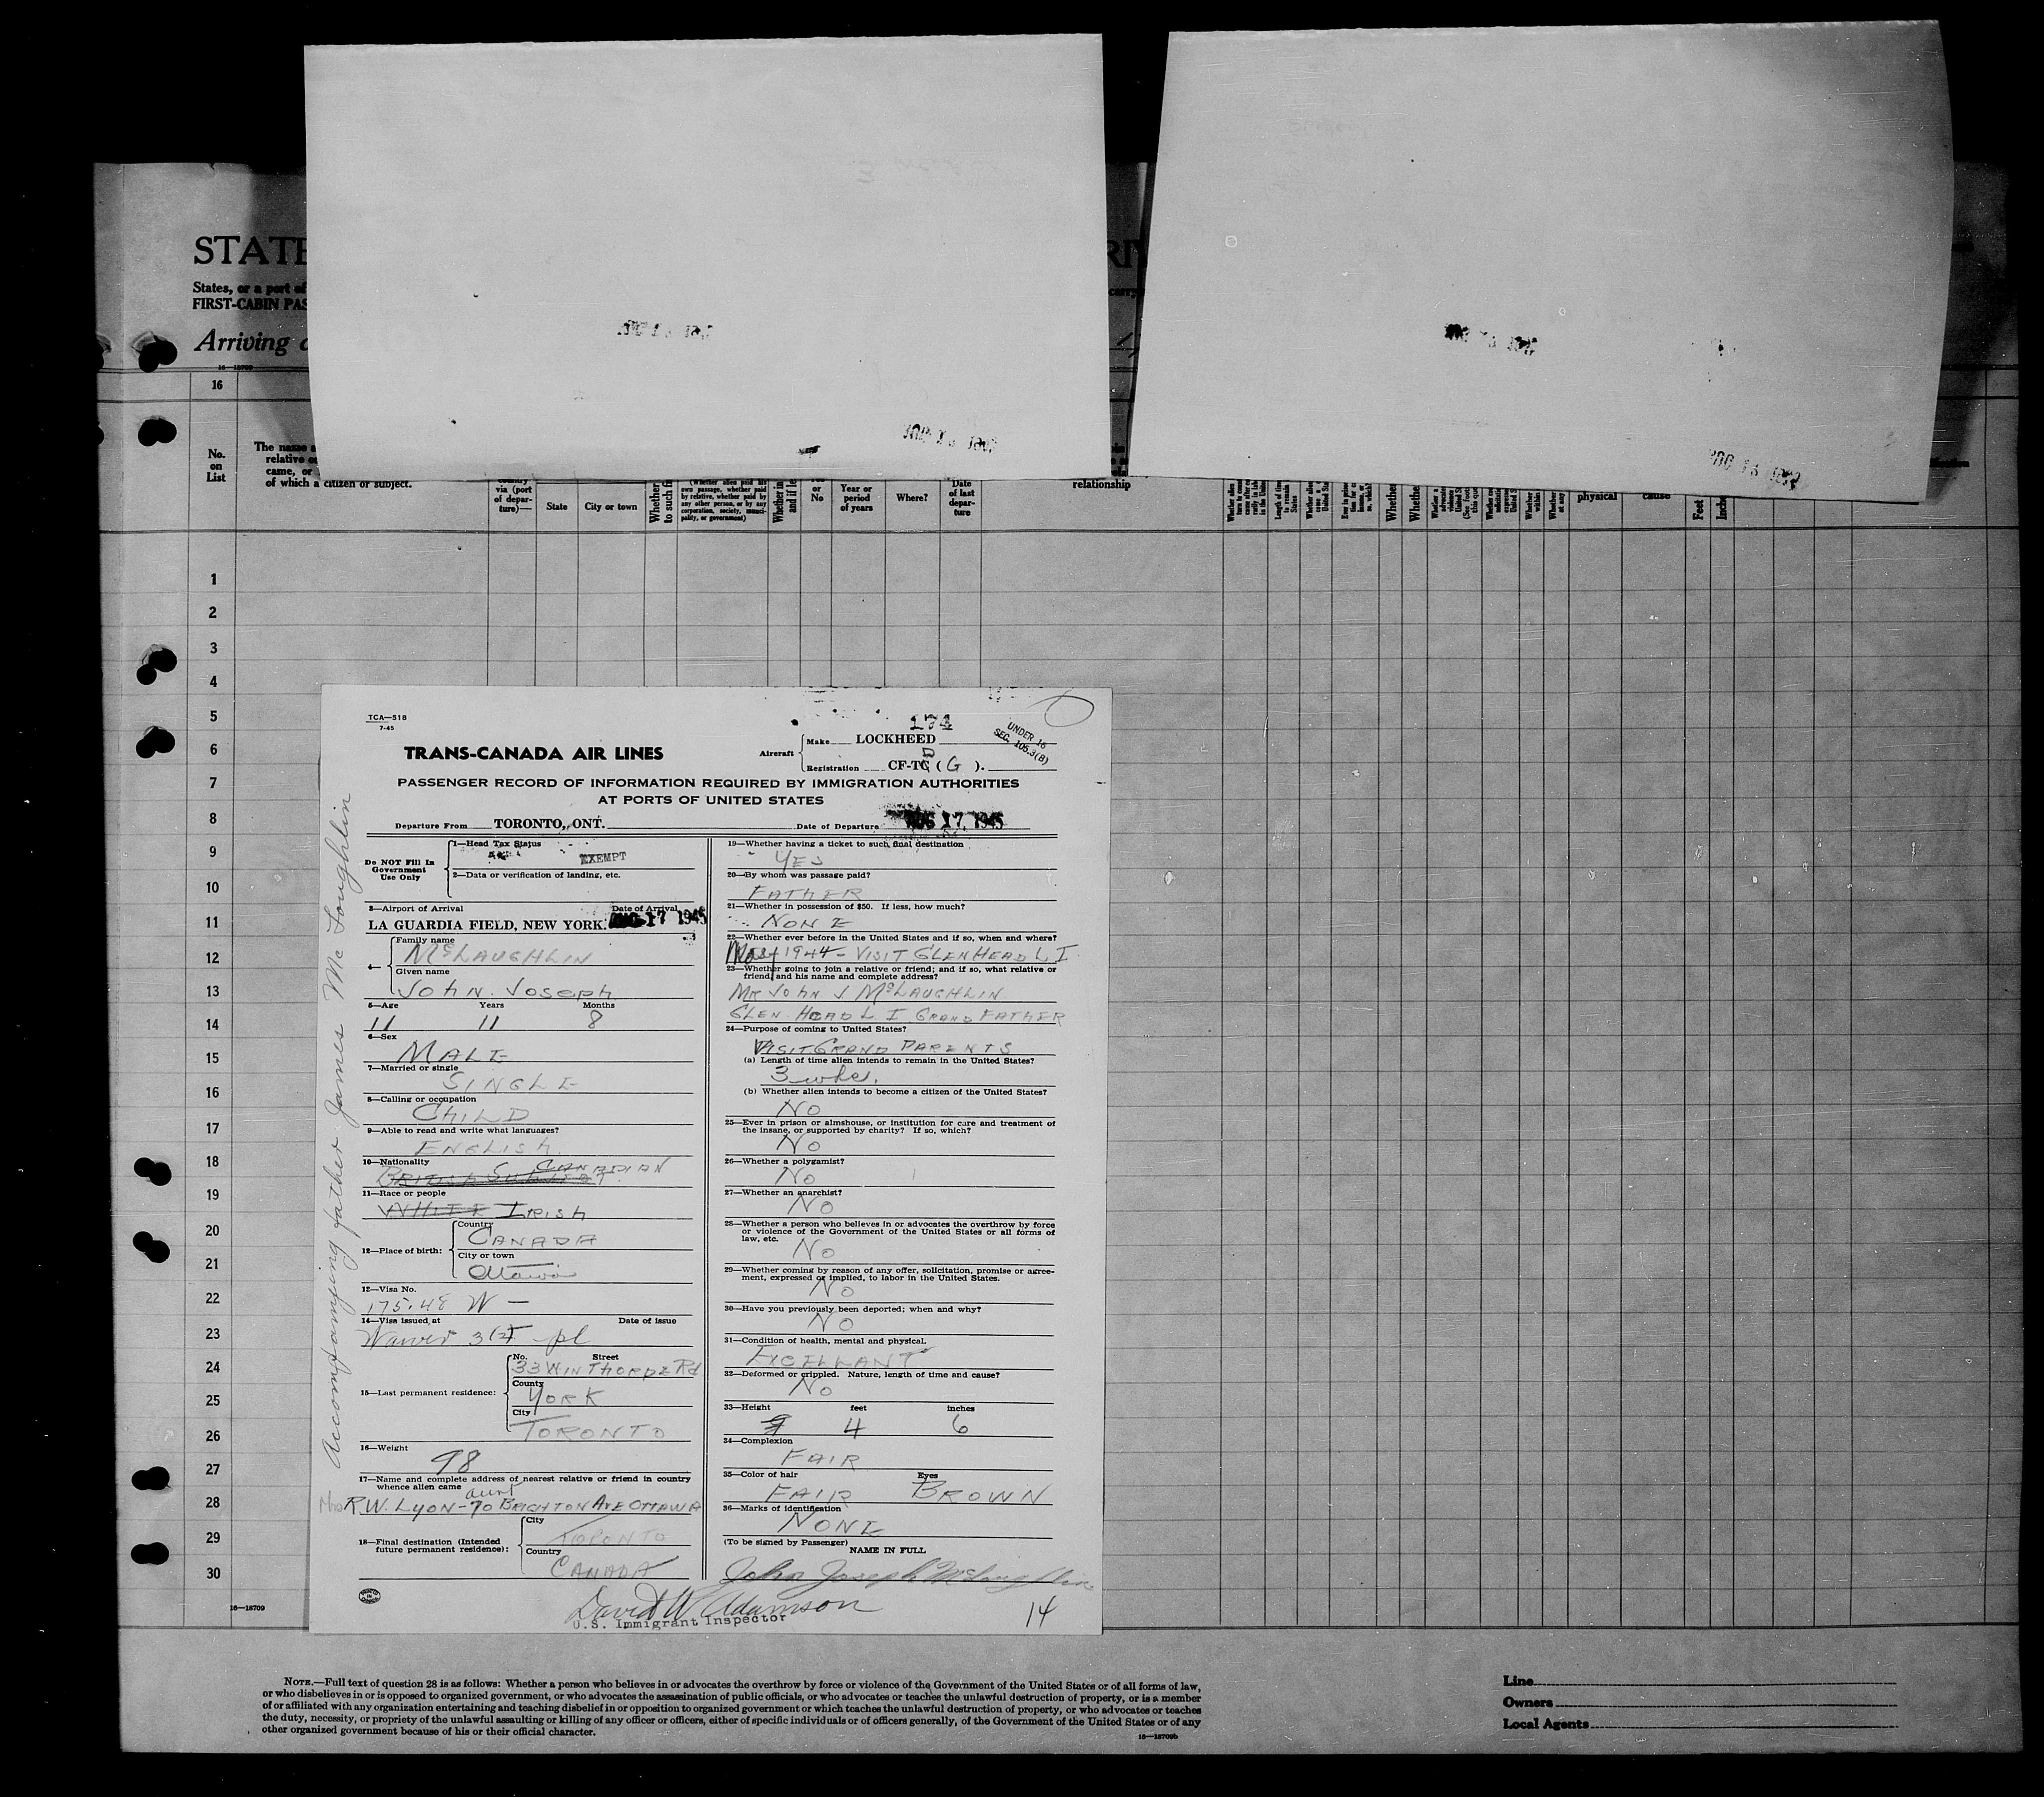 STATE
States, or a port of
FIRST-CABIN PAS
Arriving
16—18709
16
No. on List
The name a
relative or
came, or
of which a citizen or subject.
via (port of departure)—
State
City or town
Whether
to such fi
(Whether alien paid his own passage, whether paid by relative, whether paid by any other person, or by any corporation, society, municipality, or government)
Whether in
and if le
or No
Year or period of years
Where?
Date of last departure
relationship
physical
cause
Feet
Inche
1
2
3
4
5
6
7
8
9
10
11
12
13
14
15
16
17
18
19
20
21
22
23
24
25
26
27
28
29
30
16—18709
TCA—518
7-45
174
UNDER 16
SEC. 105.3(B)
TRANS-CANADA AIR LINES
Aircraft
Make LOCKHEED
Registration CF-TC (G).
PASSENGER RECORD OF INFORMATION REQUIRED BY IMMIGRATION AUTHORITIES
AT PORTS OF UNITED STATES
Departure From TORONTO, ONT. Date of Departure AUG 17, 1945
Do NOT Fill In
Government
Use Only
1—Head Tax Status
EXEMPT
2—Data or verification of landing, etc.
3—Airport of Arrival Date of Arrival
LA GUARDIA FIELD, NEW YORK. AUG 17 1945
4—
Family name
McLAUGHLIN
Given name
John. Joseph
5—Age Years Months
11 11 8
6—Sex
MALE
7—Married or single
SINGLE
8—Calling or occupation
CHILD
9—Able to read and write what languages?
ENGLISH
10—Nationality
BRITISH SUBJECT CANADIAN
11—Race or people
WHITE IRISH
12—Place of birth:
Country
CANADA
City or town
Ottawa
13—Visa No.
175.48 W —
14—Visa issued at Date of issue
Waiver 3(2) pl
15—Last permanent residence:
No. Street
33 WINTHORPE Rd
County
YORK
City
TORONTO
16—Weight
98
17—Name and complete address of nearest relative or friend in country
whence alien came aunt
Mrs R.W. LYON - 70 BRIGHTON AVE OTTAWA
18—Final destination (Intended
future permanent residence):
City
TORONTO
Country
CANADA
19—Whether having a ticket to such final destination
YES
20—By whom was passage paid?
FATHER
21—Whether in possession of $50. If less, how much?
NONE
22—Whether ever before in the United States and if so, when and where?
May 1944 - VISIT GLEN HEAD L I
23—Whether going to join a relative or friend; and if so, what relative or
friend and his name and complete address?
MR JOHN J McLAUGHLIN
GLEN HEAD L I GRAND FATHER
24—Purpose of coming to United States?
VISIT GRAND PARENTS
(a) Length of time alien intends to remain in the United States?
3 wks.
(b) Whether alien intends to become a citizen of the United States?
No
25—Ever in prison or almshouse, or institution for care and treatment of
the insane, or supported by charity? If so, which?
No
26—Whether a polygamist?
No
27—Whether an anarchist?
No
28—Whether a person who believes in or advocates the overthrow by force
or violence of the Government of the United States or all forms of
law, etc.
No
29—Whether coming by reason of any offer, solicitation, promise or agree-
ment, expressed or implied, to labor in the United States.
No
30—Have you previously been deported; when and why?
No
31—Condition of health, mental and physical.
EXCELLANT
32—Deformed or crippled. Nature, length of time and cause?
No
33—Height feet inches
4 6
34—Complexion
FAIR
35—Color of hair Eyes
FAIR BROWN
36—Marks of identification
NONE
(To be signed by Passenger)
NAME IN FULL
John Joseph McLaughlin
David W. Adamson
U.S. Immigrant Inspector
14
Accompanying father James Mc Loughlin
NOTE.—Full text of question 28 is as follows: Whether a person who believes in or advocates the overthrow by force or violence of the Government of the United States or of all forms of law,
or who disbelieves in or is opposed to organized government, or who advocates the assassination of public officials, or who advocates or teaches the unlawful destruction of property, or is a member
of or affiliated with any organization entertaining and teaching disbelief in or opposition to organized government or which teaches the unlawful destruction of property, or who advocates or teaches
the duty, necessity, or propriety of the unlawful assaulting or killing of any officer or officers, either of specific individuals or of officers generally, of the Government of the United States or of any
other organized government because of his or their official character.
16—18709b
Line
Owners
Local Agents